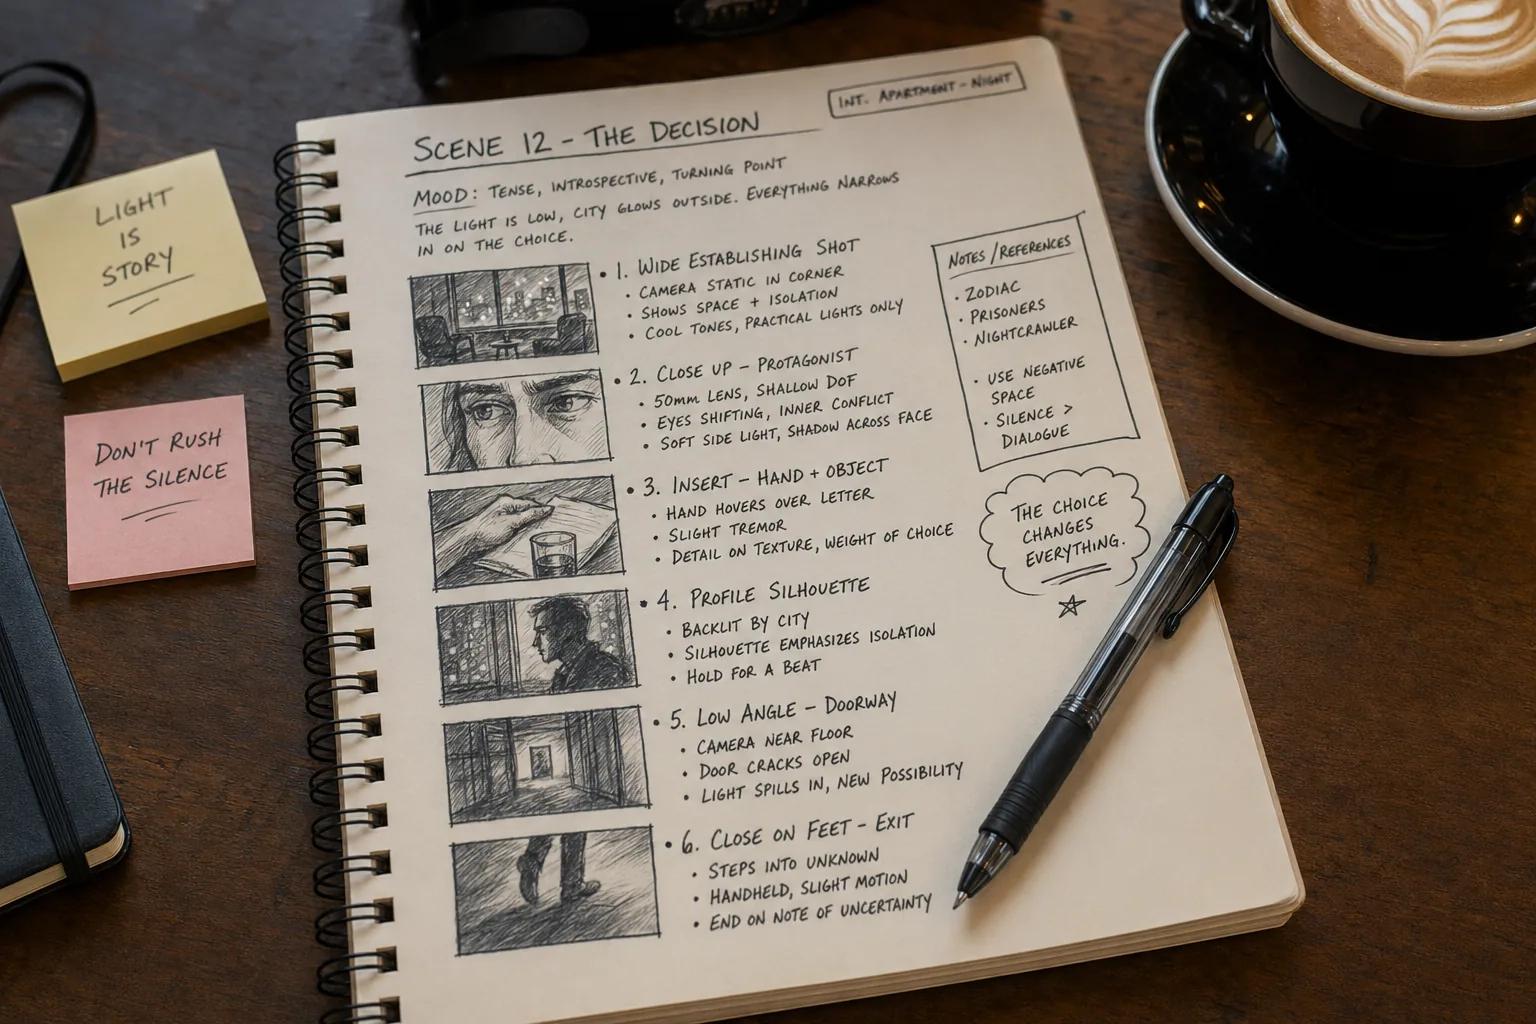 LIGHT
IS
STORY
DON'T RUSH
THE SILENCE
SCENE 12 - THE DECISION
INT. APARTMENT - NIGHT
MOOD: TENSE, INTROSPECTIVE, TURNING POINT
THE LIGHT IS LOW, CITY GLOWS OUTSIDE. EVERYTHING NARROWS
IN ON THE CHOICE.
• 1. WIDE ESTABLISHING SHOT
• CAMERA STATIC IN CORNER
• SHOWS SPACE + ISOLATION
• COOL TONES, PRACTICAL LIGHTS ONLY
• 2. CLOSE UP - PROTAGONIST
• 50mm LENS, SHALLOW DOF
• EYES SHIFTING, INNER CONFLICT
• SOFT SIDE LIGHT, SHADOW ACROSS FACE
• 3. INSERT - HAND + OBJECT
• HAND HOVERS OVER LETTER
• SLIGHT TREMOR
• DETAIL ON TEXTURE, WEIGHT OF CHOICE
• 4. PROFILE SILHOUETTE
• BACKLIT BY CITY
• SILHOUETTE EMPHASIZES ISOLATION
• HOLD FOR A BEAT
• 5. LOW ANGLE - DOORWAY
• CAMERA NEAR FLOOR
• DOOR CRACKS OPEN
• LIGHT SPILLS IN, NEW POSSIBILITY
• 6. CLOSE ON FEET - EXIT
• STEPS INTO UNKNOWN
• HANDHELD, SLIGHT MOTION
• END ON NOTE OF UNCERTAINTY
NOTES / REFERENCES
• ZODIAC
• PRISONERS
• NIGHTCRAWLER
• USE NEGATIVE
SPACE
• SILENCE >
DIALOGUE
THE CHOICE
CHANGES
EVERYTHING.